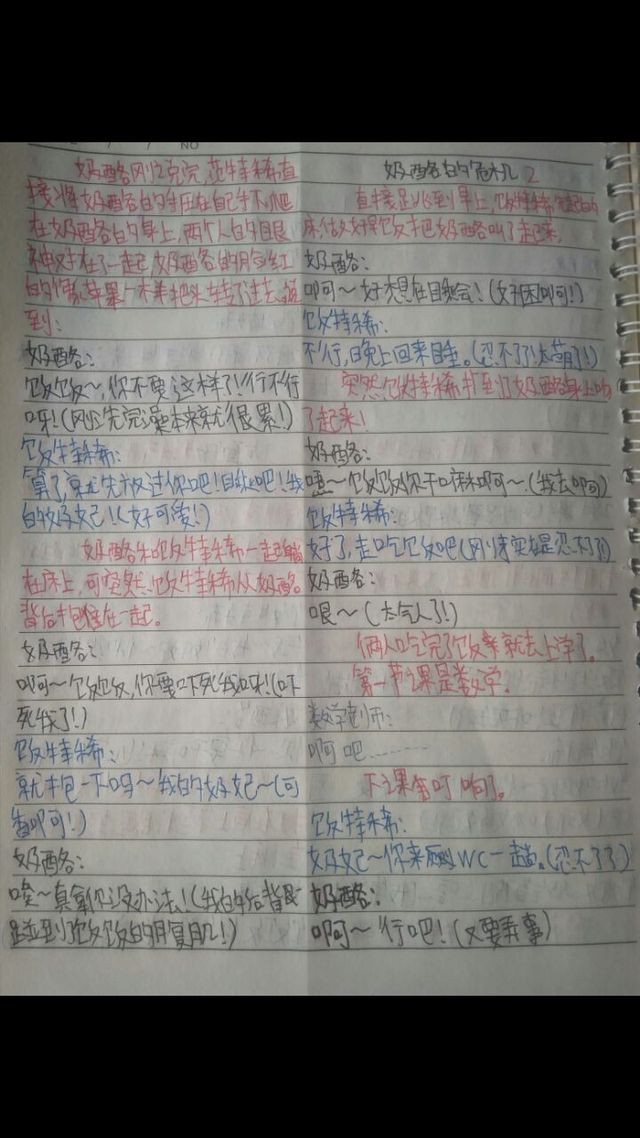 NO
奶酪刚洗完，饭特稀直
接将奶酪的手压在自己手下爬
在奶酪的身上，两个人的眼
神对在了一起，奶酪的脸红
的像苹果一样把头转了过去，说
到：
奶酪：
饭饭～，你不要这样了！行不行
呀！(刚洗完澡本来就很累！)
饭特稀：
算了就先放过你吧！自睡吧！我
的奶妃！(好可爱！)
奶酪和饭特稀一起躺
在床上，可突然饭特稀从奶酪
背后抱住在一起。
奶酪：
啊～饭饭，你要吓死我呀！(吓
死我了！)
饭特稀：
就抱一下吗～我的奶妃～(可
香啊！)
奶酪：
唉～真拿你没办法！(我的后背
碰到饭饭的腹肌！)
奶酪的危机 2
直接是跳到早上，饭特稀
床做好早饭把奶酪叫了起来，
奶酪：
啊～好想在自睡会！(好困啊！)
饭特稀：
不行，晚上回来睡。(忍不了！太萌了！)
突然饭特稀扑到了奶酪身上
了起来！
奶酪：
～饭饭你干嘛啊～(我去啊)
饭特稀：
好了，走吃饭吧(刚才实是忍不了)
奶酪：
哏～(太气人了！)
俩人吃完饭就去上学了。
第一节课是数学。
数学老师：
啊吧……
下课铃叮响了。
饭特稀：
奶妃～你来厕所WC一趟。(忍不了了)
奶酪：
啊～行吧！(又要弄事)